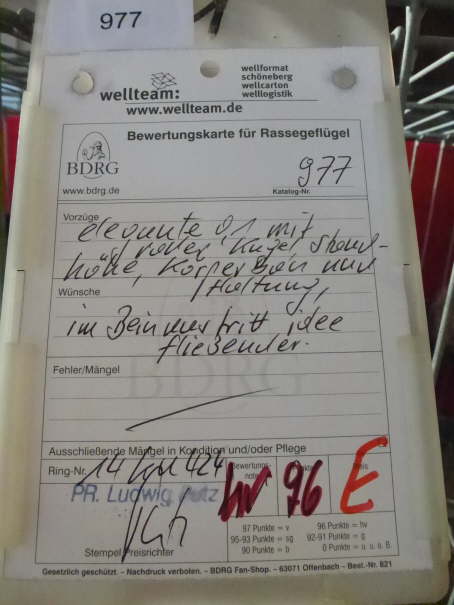 977
wellteam:
www.wellteam.de
wellformat
schöneberg
wellcarton
welllogistik
BDRG
www.bdrg.de
Bewertungskarte für Rassegeflügel
977
Katalog-Nr.
Vorzüge
elegante 0,1 mit
voller Kugel, Stand-
höhe, Körperbau und
Haltung,
Wünsche
im Beinaustritt idee
fließender.
Fehler/Mängel
BDRG
Ausschließende Mängel in Kondition und/oder Pflege
Ring-Nr. 14 424
Bewertungs-
note
hv
96
Preis
E
PR. Ludwig
Stempel Preisrichter
97 Punkte = v
96 Punkte = hv
95-93 Punkte = sg
92-91 Punkte = g
90 Punkte = b
0 Punkte = u. o. B
Gesetzlich geschützt. – Nachdruck verboten. – BDRG Fan-Shop. – 63071 Offenbach – Best.-Nr. 821